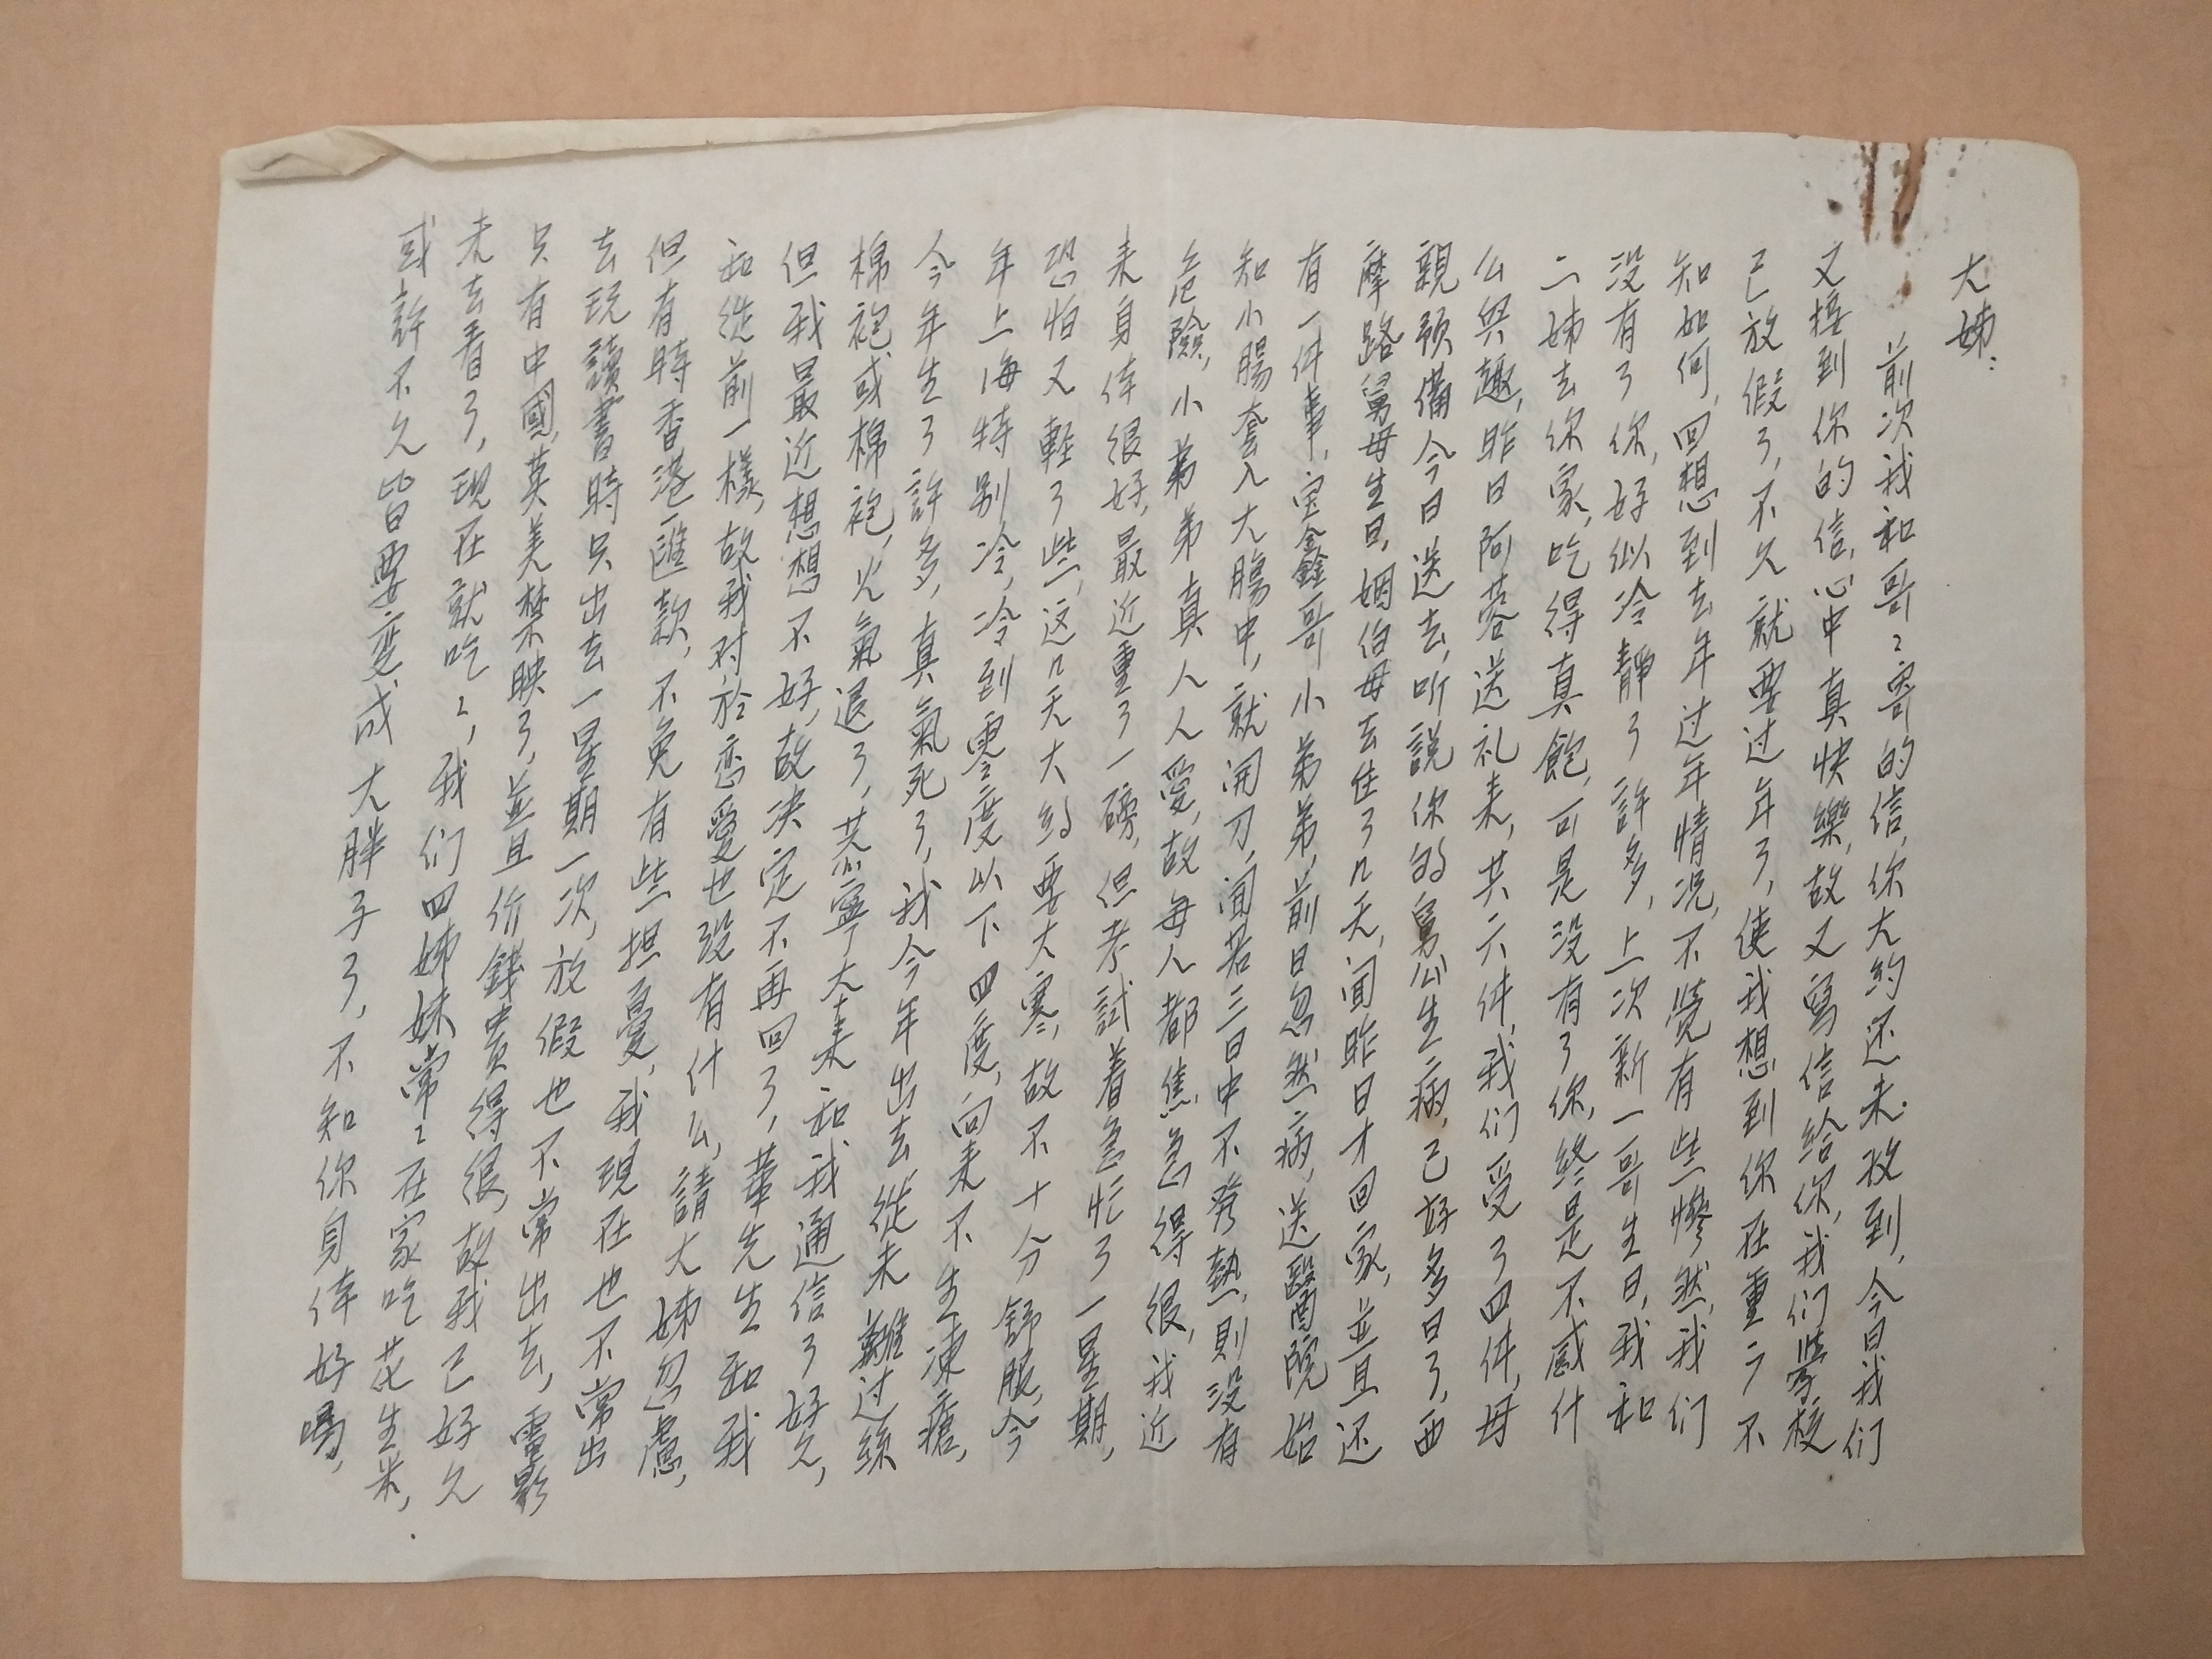 大姊：
前次我和哥〻寄的信，你大約还未收到，今日我们
又接到你的信，心中真快樂，故又寫信給你，我们學校
已放假了，不久就要过年了，使我想到你在重ケ不
知如何，回想到去年过年情况，不覚有些慘然，我们
没有了你，好似冷靜了許多，上次新一哥生日，我和
二姊去你家，吃得真飽，可是没有了你，終是不感什
么興趣，昨日阿蓉送礼来，共六件，我们受了四件，母
親預備今日送去，听説你的舅公生病，已好多日了，西
摩路舅母生日，姻伯母去住了几天，闻昨日才回家，並且还
有一件事，宝鑫哥小弟弟，前日忽然病，送醫院始
知小腸套入大腸中，就開刀，闻若三日中不発熱，則没有
危險，小弟弟真人人愛，故每人都焦急得很，我近
来身体很好，最近重了一磅，但考試着急忙了一星期，
恐怕又軽了些，这几天大約要大寒，故不十分舒服，今
年上海特别冷，冷到零度以下四度，向来不生凍瘡，
今年生了許多，真氣死了，我今年出去，從未離过絲
棉袍或棉袍，火氣退了，芸寧大来和我通信了好久，
但我最近想想不好，故决定不再回了，華先生和我
和從前一樣，故我对於恋愛也没有什么，請大姊勿慮，
但有時香港匯款，不免有些担憂，我現在也不常出
去玩，讀書時只出去一星期一次，放假也不常出去，電影
只有中國，英美禁映了，並且价錢貴得很，故我已好久
未去看了，現在就吃〻，我们四姊妹常〻在家吃花生米，
或許不久皆要变成大胖子了，不知你身体好嗎，